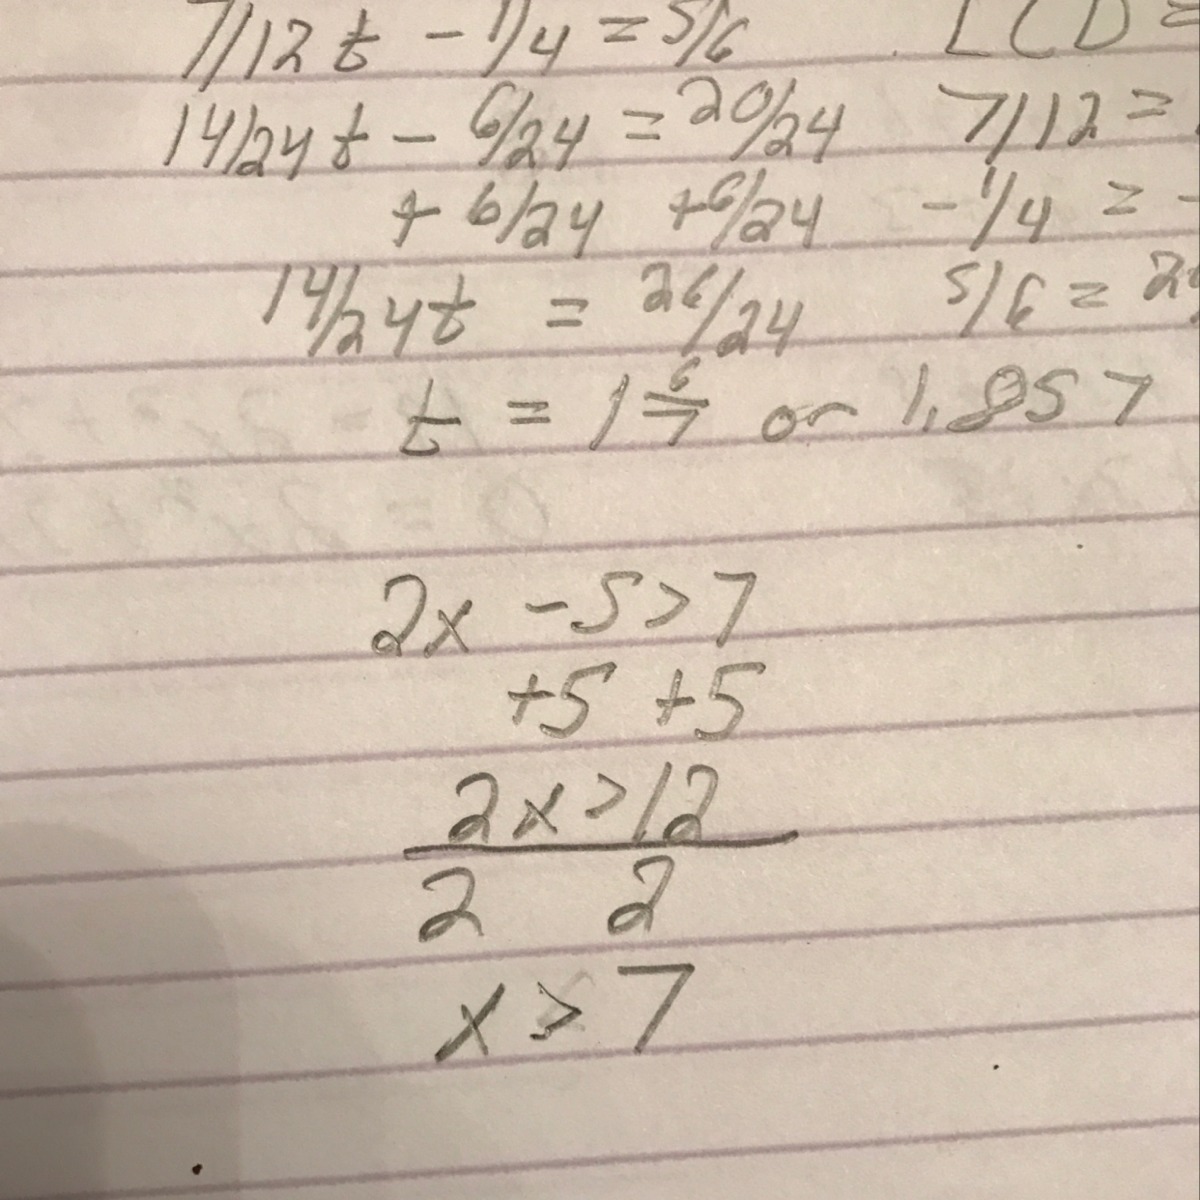 7/12 t - 1/4 = 5/6 LCD =
14/24 t - 6/24 = 20/24 7/12 =
+ 6/24 +6/24 - 1/4 = -
14/24t = 26/24 5/6 = 2
t = 1 6/7 or 1.857
2x - 5 > 7
+5 +5
2x > 12
2 2
x > 7